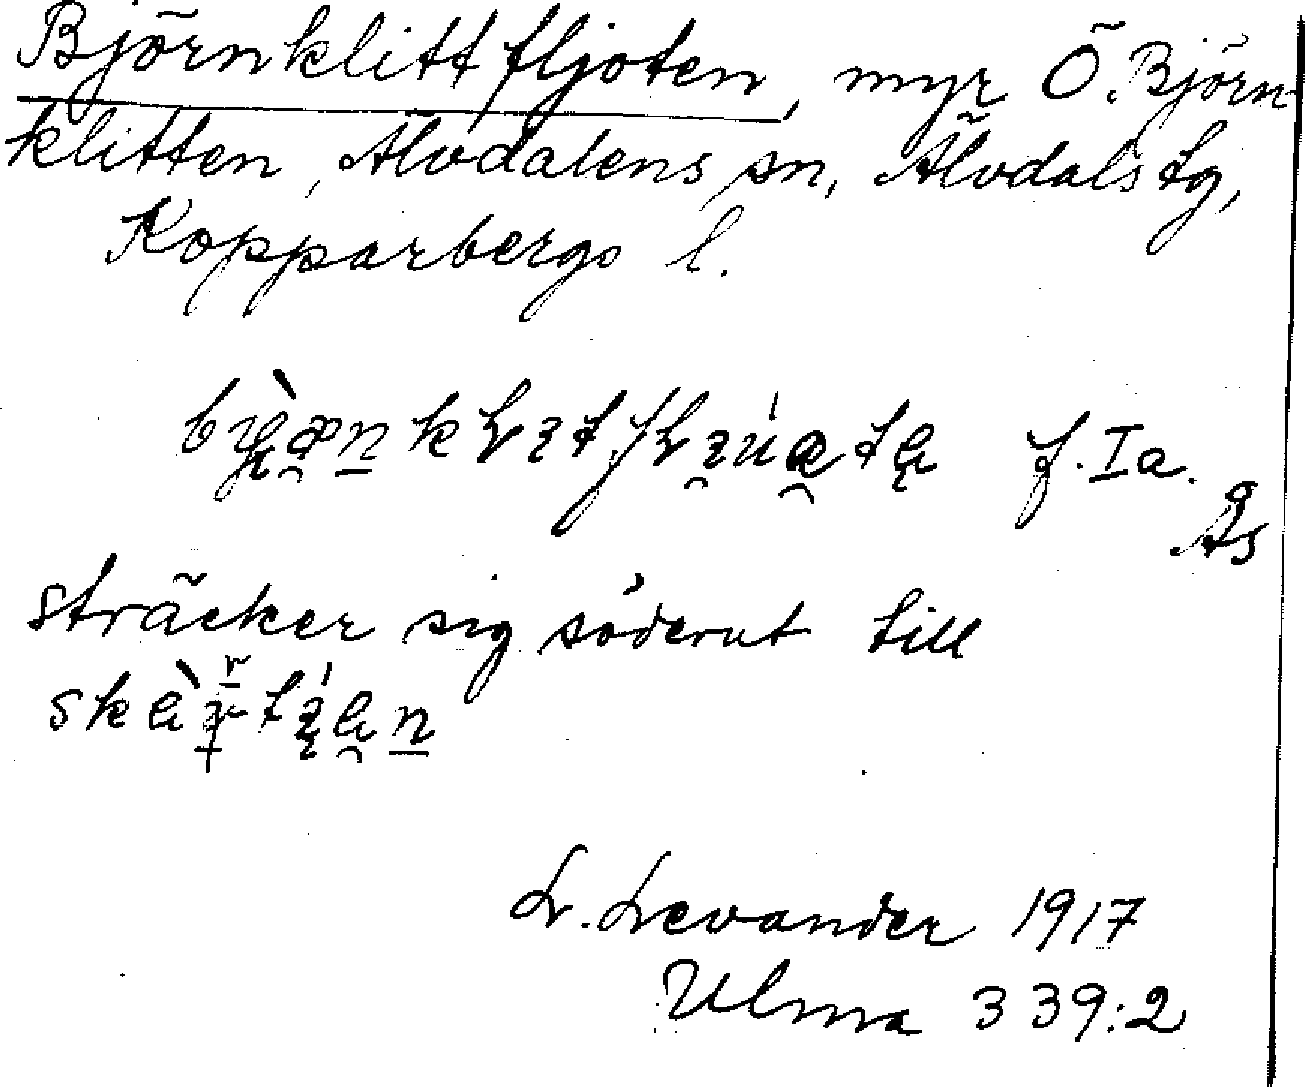 Björnklittfljoten, myr Ö. Björn-
klitten, Älvdalens sn, Älvdals tg,
Kopparbergs l.
f. Ia.
Ås
sträcker sig söderut till
L. Levander 1917
Ulma 339:2